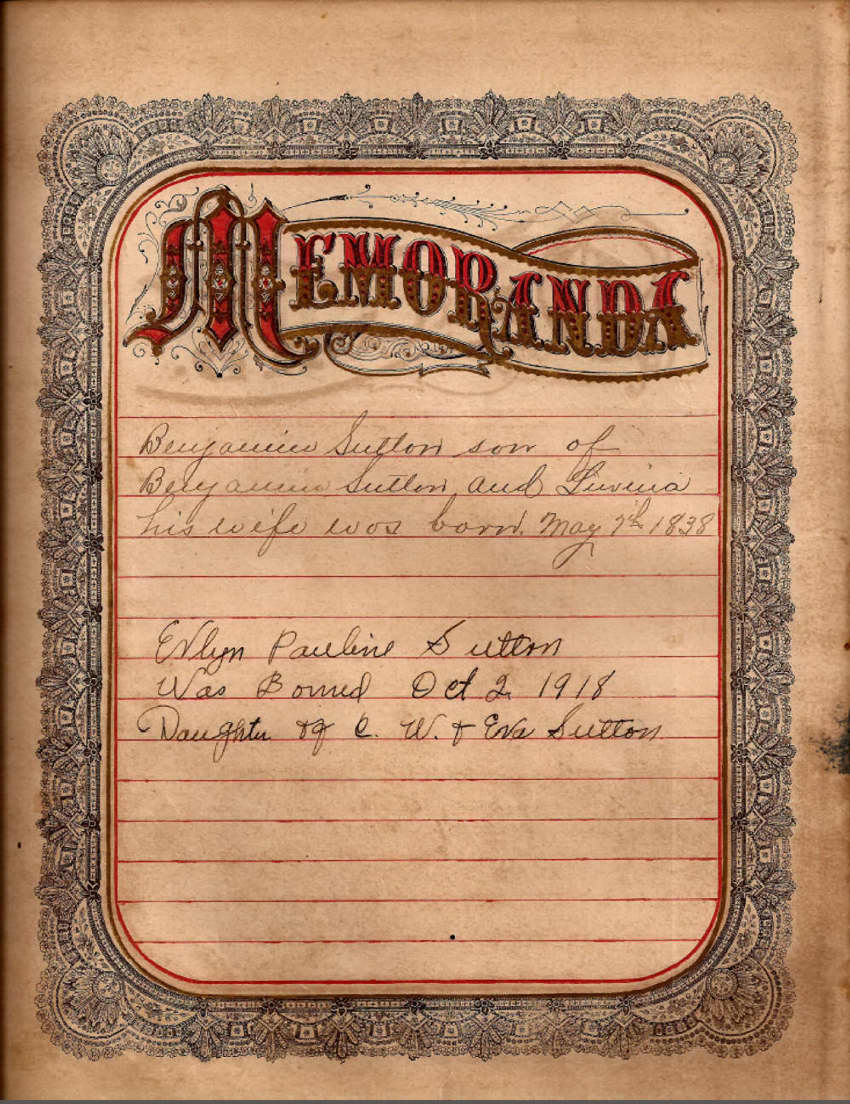 MEMORANDA
Benjamin Sutton son of
Benjamin Sutton and Luvina
his wife was born. May 7th 1838
Evlyn Pauline Sutton
Was Borned Oct 2 1918
Daughter of C. W. & Eva Sutton